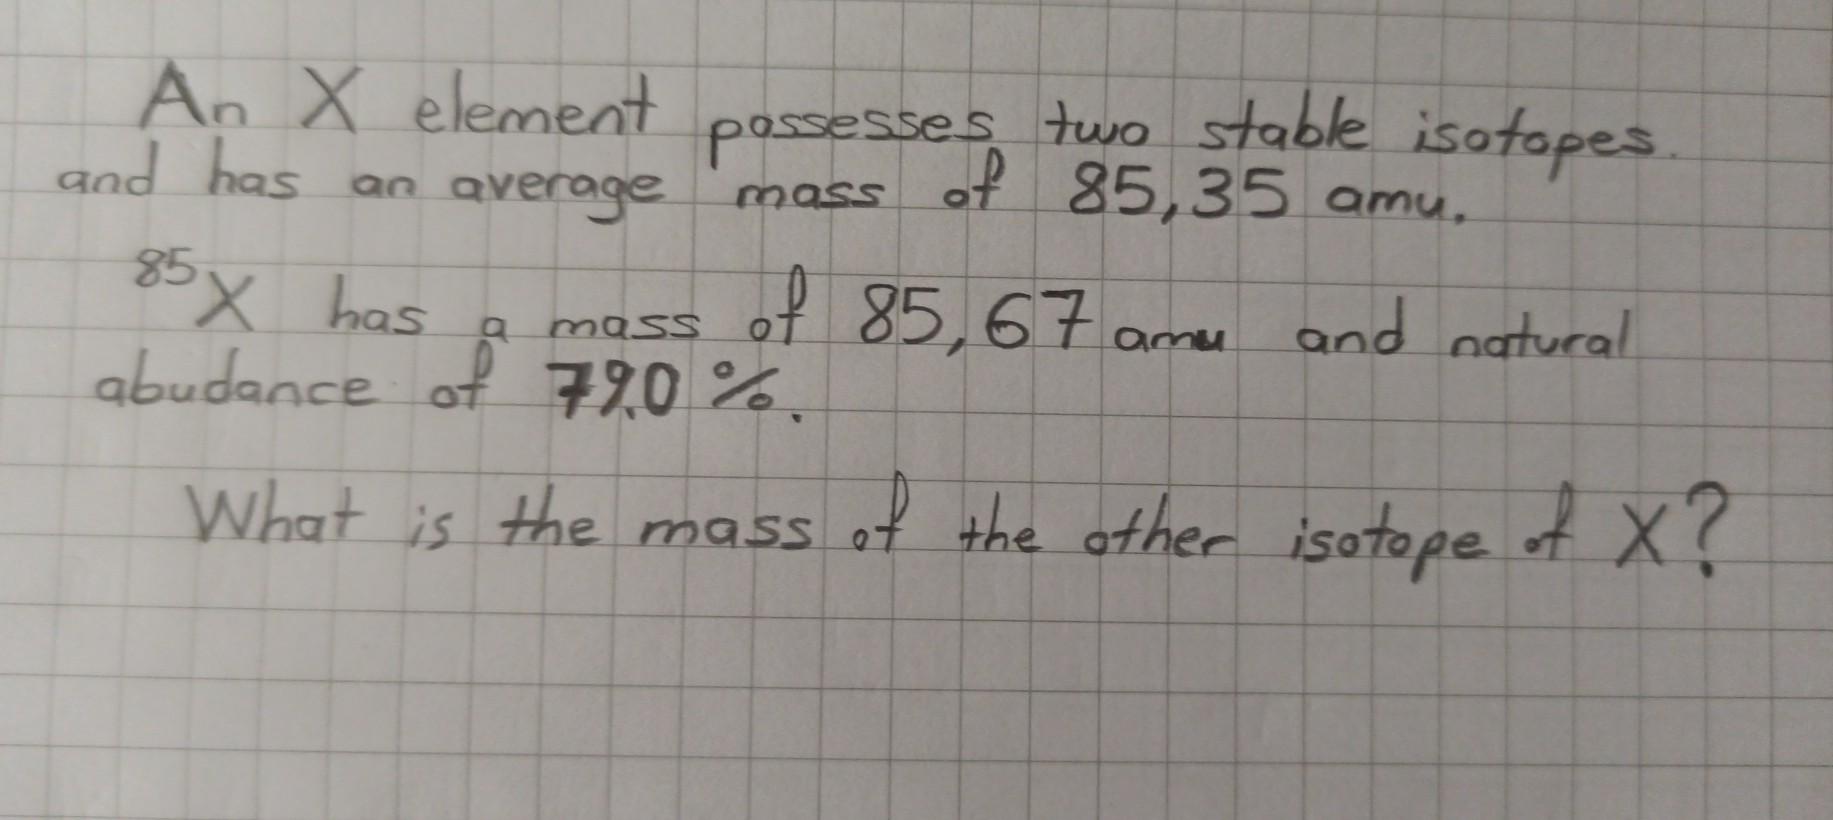 An X element possesses two stable isotopes.
and has an average mass of 85,35 amu.
⁸⁵X has a mass of 85,67 amu and natural
abudance of 79.0 %.
What is the mass of the other isotope of X?